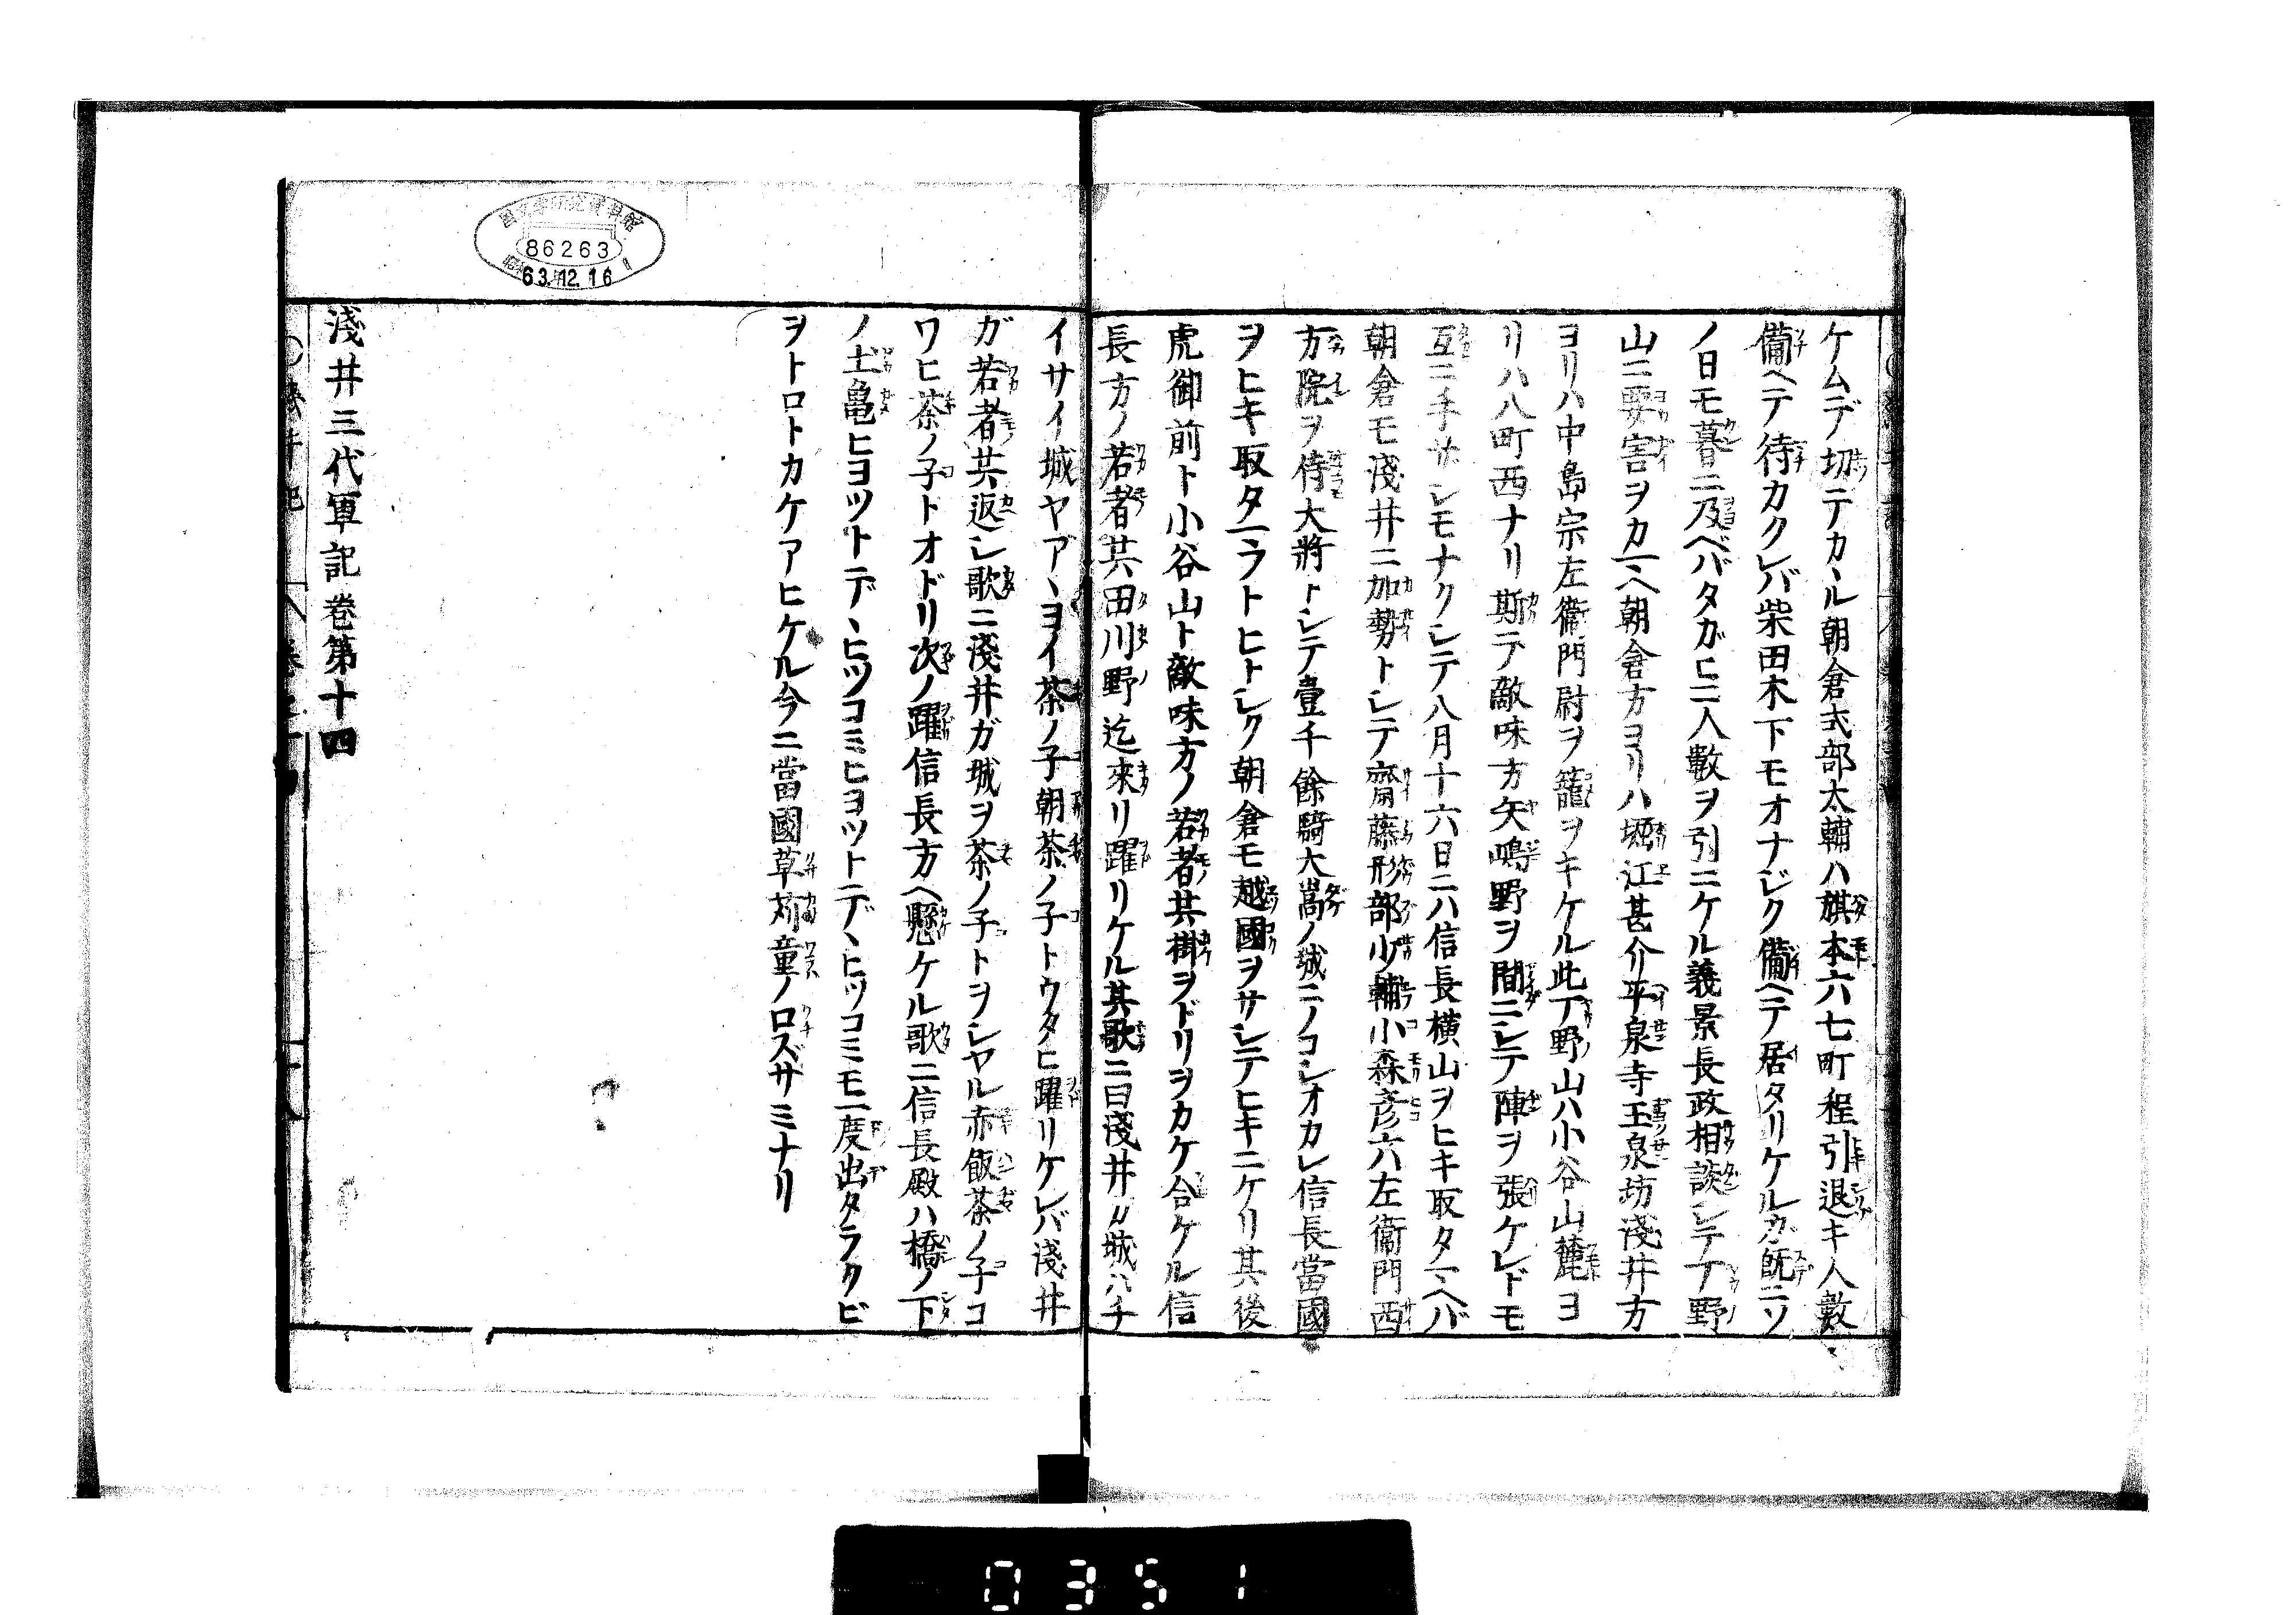 ケムデ切テカヽル朝倉式部太輔ハ旗本六七町程引退キ人數
備ヘテ待カクレバ柴田木下モオナジク備ヘテ居タリケルガ既ニソ
ノ日モ暮ニ及ベバタガヒニ人數ヲ引ニケル義景長政相談シテ丁野
山ニ要害ヲカマヘ朝倉方ヨリハ堀江甚介平泉寺玉泉坊淺井方
ヨリハ中島宗左衛門尉ヲ籠ヲキケル此丁野山ハ小谷山麓ヨ
リハ八町西ナリ斯テ敵味方矢嶋野ヲ間ニシテ陣ヲ張ケレドモ
互ニ手サシモナクシテ八月十六日ニハ信長横山ヲヒキ取タマヘバ
朝倉モ淺井ニ加勢トシテ齋藤形部少輔小森彦六左衛門西
方院ヲ侍大將トシテ壹千餘騎大嵩ノ城ニノコシオカレ信長當國
ヲヒキ取タマフトヒトシク朝倉モ越國ヲサシテヒキニケリ其後
虎御前ト小谷山ト敵味方ノ若者共掛ヲドリヲカケ合ケル信
長方ノ若者共田川野迄來リ躍リケル其歌ニ曰淺井ガ城ハチ
イサイ城ヤアヽヨイ茶ノ子朝茶ノ子トウタヒ躍リケレバ淺井
ガ若者共返シ歌ニ淺井ガ城ヲ茶ノ子トヲシヤル赤飯茶ノ子コ
ワヒ茶ノ子トオドリ次ノ躍信長方ヘ懸ケル歌ニ信長殿ハ橋ノ下
ノ土亀ヒヨツトデヽヒツコミヒヨツトデヽヒツコミモ一度出タラクビ
ヲトロトカケアヒケル今ニ當國草苅童ノ口ズサミナリ
淺井三代軍記卷第十四
86263
63.12.16
0351